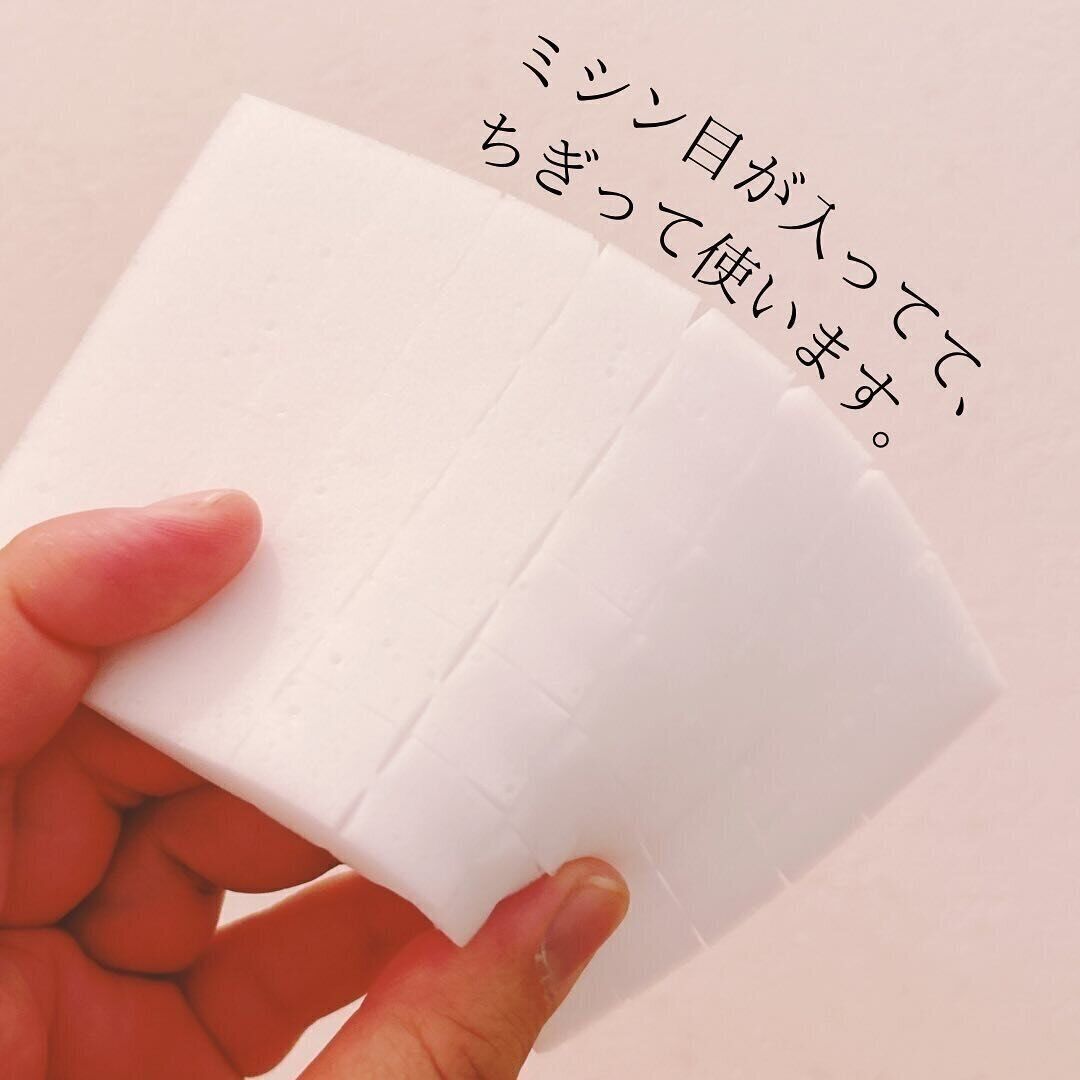 ミシン目が入ってて、
ちぎって使います。